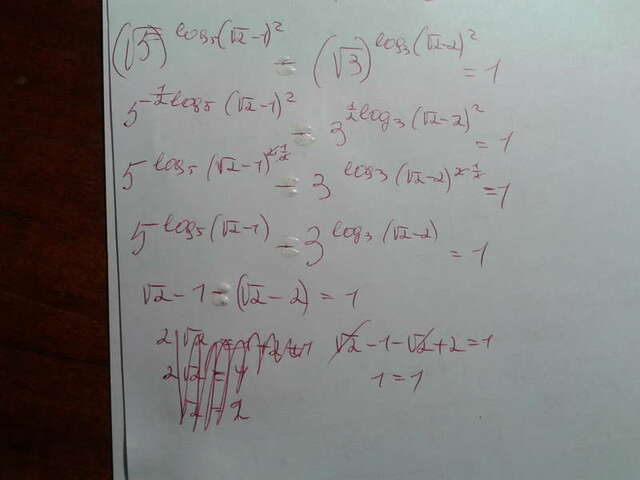 (√5)^log₅(√2-1)² - (√3)^log₃(√2-2)² = 1
5^½log₅(√2-1)² - 3^½log₃(√2-2)² = 1
5^log₅(√2-1)^2·½ - 3^log₃(√2-2)^2·½ = 1
5^log₅(√2-1) - 3^log₃(√2-2) = 1
√2-1-(√2-2) = 1
√2-1-√2+2=1
1=1